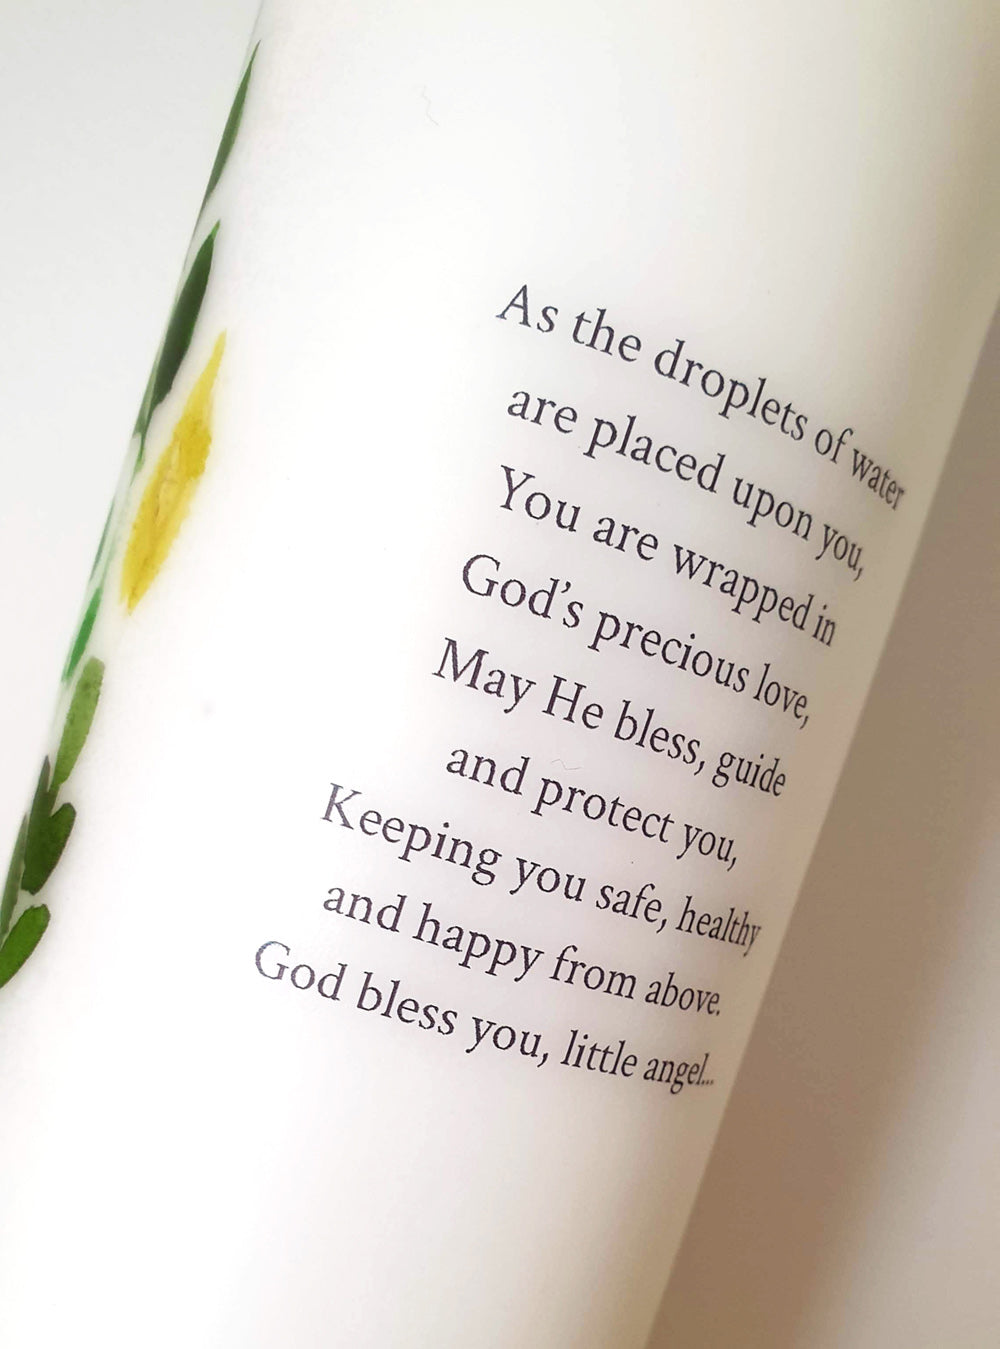 As the droplets of water
are placed upon you,
You are wrapped in
God's precious love,
May He bless, guide
and protect you,
Keeping you safe, healthy
and happy from above.
God bless you, little angel...